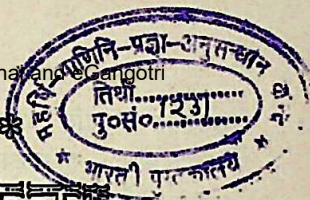 nai and eGangotri
महर्षि पाणिनि-प्रज्ञा-अनुसन्धान
तिथी..............
पु०सं०..............
भारती पुस्तकालय